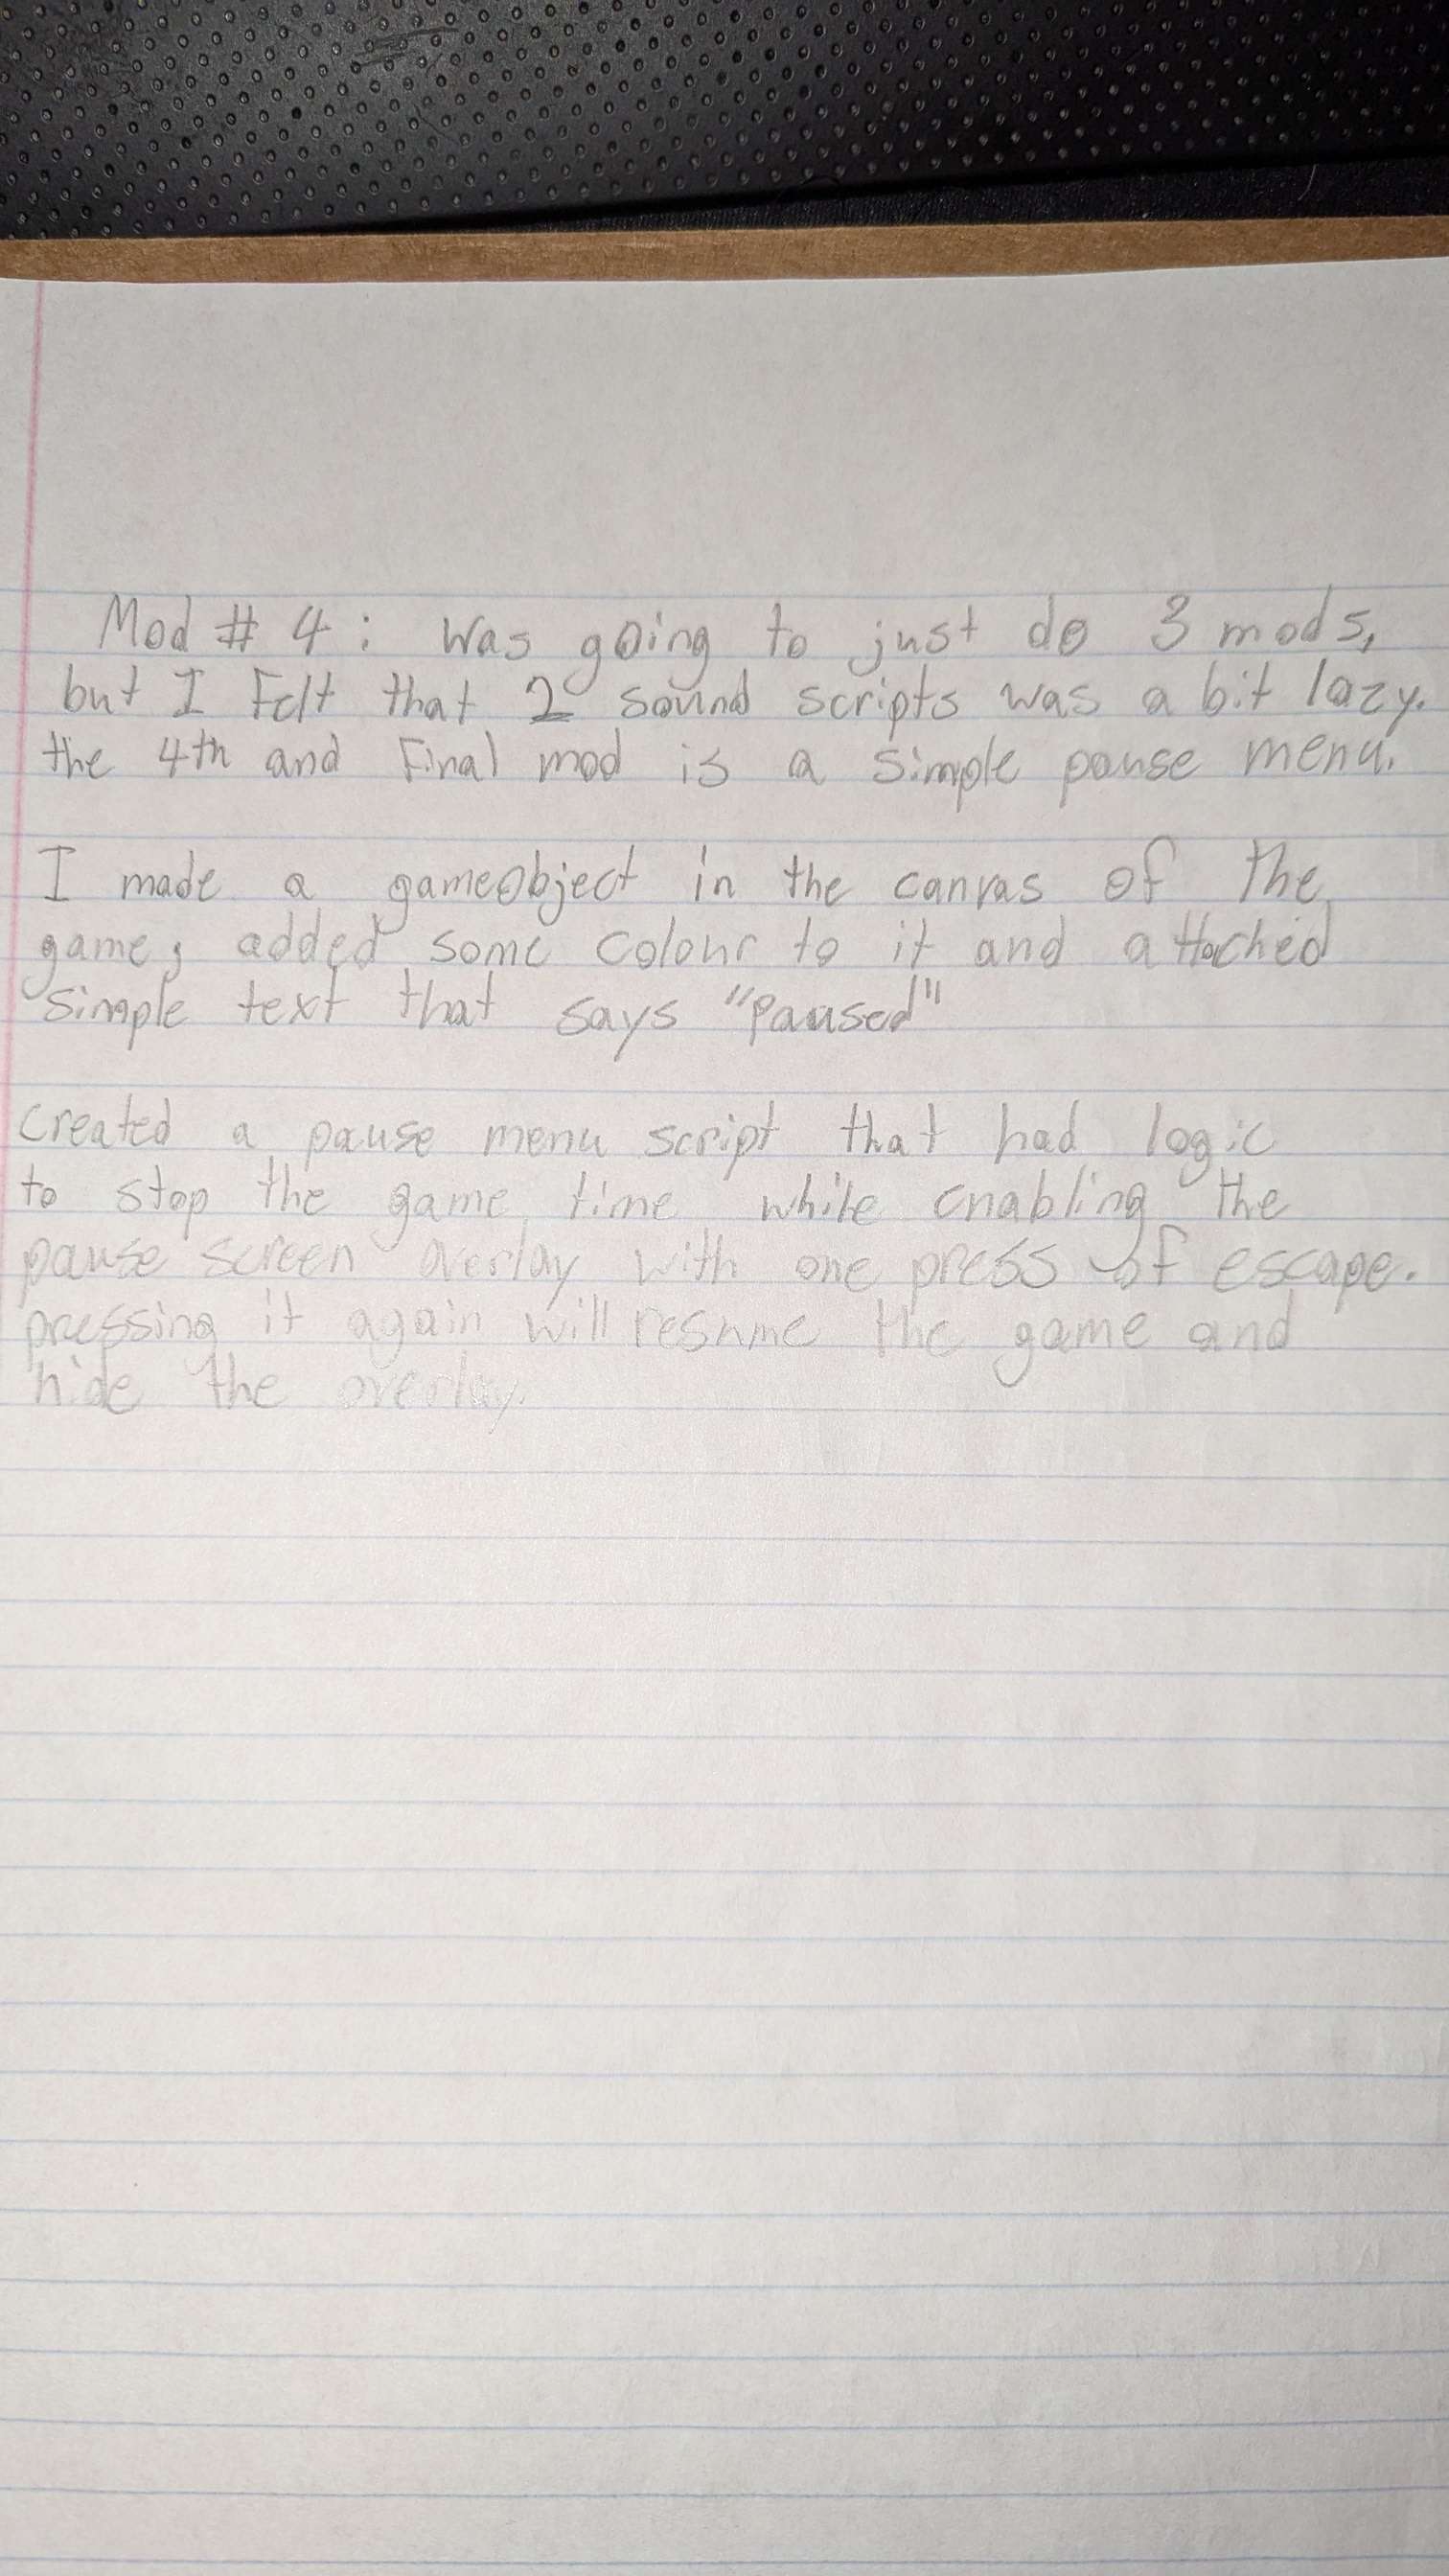 Mod # 4: Was going to just do 3 mods,
but I Felt that 2 sound scripts was a bit lazy.
the 4th and Final mod is a simple pause menu.
I made a gameobject in the canvas of the
game, added some colour to it and attached
simple text that says "Paused"
created a pause menu script that had logic
to stop the game time while enabling the
pause screen overlay with one press of escape.
pressing it again will resume the game and
hide the overlay.